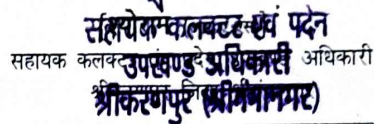 सहायक कलक्टर एवं पदेन
सहायक कलक्ट
उपखण्ड अधिकारी अधिकारी
श्रीकरणपुर (श्रीगंगानगर)